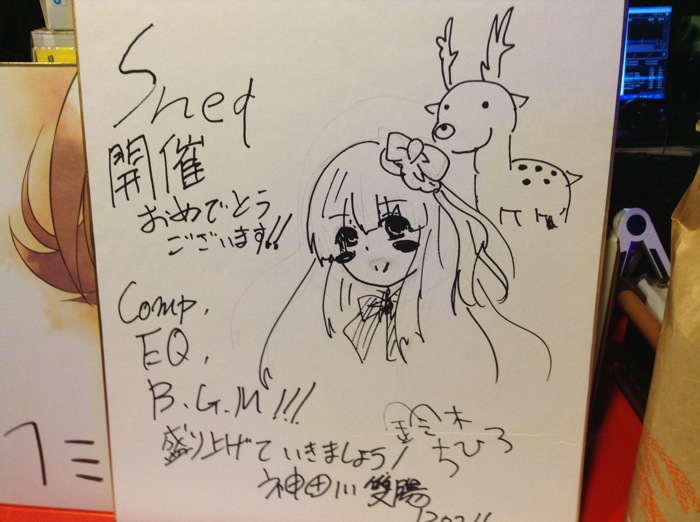 Shed
開催
おめでとう
ございます!!
Comp.
EQ.
B.G.M!!!
鈴木
盛り上げていきましょう!
ちひろ
神田川 雙陽